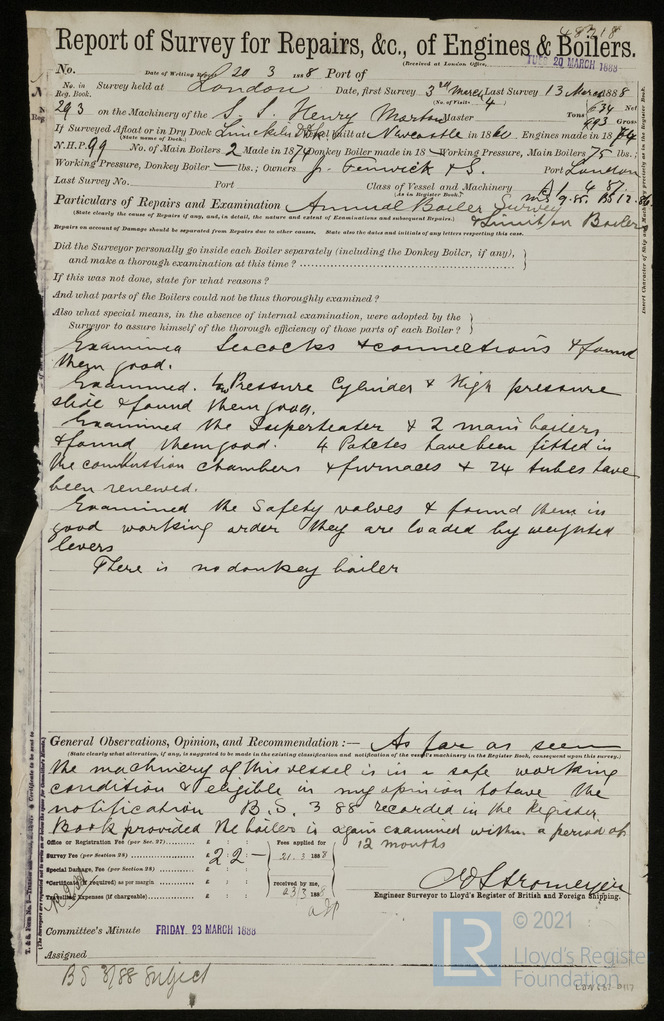 48218
Report of Survey for Repairs, &c., of Engines & Boilers.
(Received at London Office, TUES 20 MARCH 1888
No. Date of Writing Report 20 3 1888 Port of
No. in Reg. Book. Survey held at London Date, first Survey 3rd March Last Survey 13 March 1888
(No. of Visits 4
293 on the Machinery of the S. S. Henry Morton Master Tons 634 Net 893 Gross
If Surveyed Afloat or in Dry Dock Built at Newcastle in 1860 Engines made in 1874
(State name of Dock.)
N.H.P. 99 No. of Main Boilers 2 Made in 1874 Donkey Boiler made in 18 — Working Pressure, Main Boilers 75 lbs.;
Working Pressure, Donkey Boiler — lbs.; Owners J. Fenwick & S. Port London
Last Survey No. Port Class of Vessel and Machinery
(As in Register Book.)
Particulars of Repairs and Examination Annual Boiler Survey
(State clearly the cause of Repairs if any, and, in detail, the nature and extent of Examinations and subsequent Repairs.)
Repairs on account of Damage should be separated from Repairs due to other causes. State also the dates and initials of any letters respecting this case.
Did the Surveyor personally go inside each Boiler separately (including the Donkey Boiler, if any),
and make a thorough examination at this time ?
If this was not done, state for what reasons ?
And what parts of the Boilers could not be thus thoroughly examined ?
Also what special means, in the absence of internal examination, were adopted by the
Surveyor to assure himself of the thorough efficiency of those parts of each Boiler ?
Examined Seacocks & connections & found
them good.
Examined Pressure Cylinder & High pressure
slide & found them good.
Examined the Superheater & 2 main boilers
& found them good. 4 Patches have been fitted in
the combustion chambers & furnaces & 24 tubes have
been renewed.
Examined the Safety valves & found them in
good working order they are loaded by weighted
levers
There is no donkey boiler
General Observations, Opinion, and Recommendation :— As far as seen
(State clearly what alteration, if any, is suggested to be made in the existing classification and notification of the vessel's machinery in the Register Book, consequent upon this survey.)
the machinery of this vessel is in a safe working
condition & eligible in my opinion to have the
notification B.S. 3 88 recorded in the Register
Book provided the boilers is again examined within a period of
12 months
Office or Registration Fee (per Sec. 27) £ : :
Survey Fee (per Section 28) £ 2 : 2 : —
Special Damage Fee (per Section 28) £ : :
*Certificate (if required) as per margin £ : :
Travelling Expenses (if chargeable) £ : :
Fees applied for 21.3 1888
received by me, 23/3 1888
Engineer Surveyor to Lloyd's Register of British and Foreign Shipping.
Committee's Minute FRIDAY, 23 MARCH 1888
Assigned
BS 3/88 Subject
© 2021
LR
Lloyd's Register
Foundation